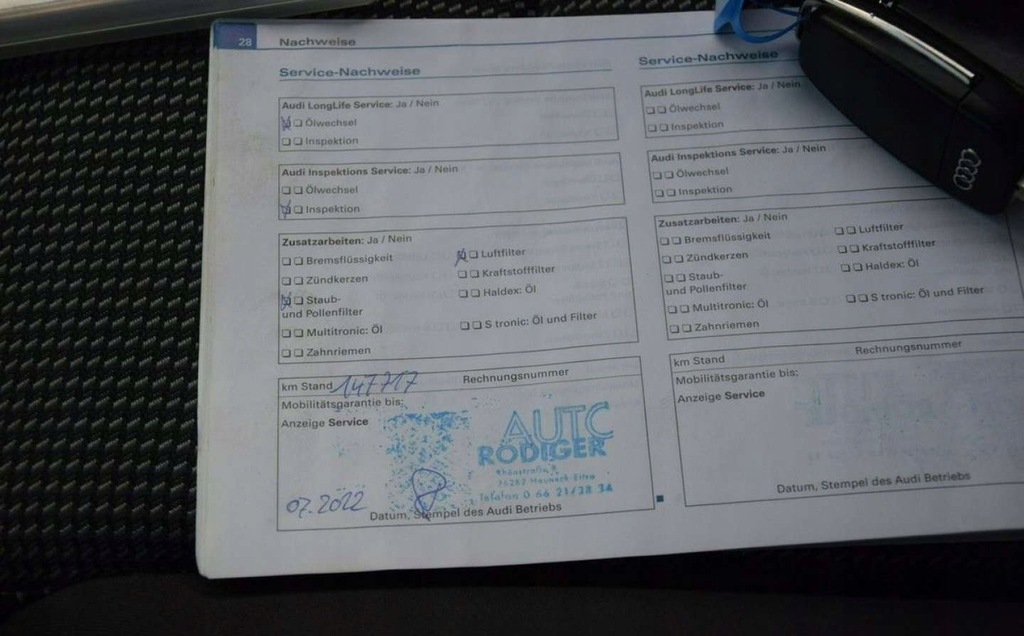 28 Nachweise
Service-Nachweise
Audi LongLife Service: Ja / Nein
Ölwechsel
Inspektion
Audi Inspektions Service: Ja / Nein
Ölwechsel
Inspektion
Zusatzarbeiten: Ja / Nein
Bremsflüssigkeit
Luftfilter
Zündkerzen
Kraftstofffilter
Staub-
und Pollenfilter
Haldex: Öl
Multitronic: Öl
S tronic: Öl und Filter
Zahnriemen
km Stand 147717
Rechnungsnummer
Mobilitätsgarantie bis:
Anzeige Service
AUTO
RÖDIGER
Telefon 0 66 21/38 34
07.2022
Datum, Stempel des Audi Betriebs
Service-Nachweise
Audi LongLife Service: Ja / Nein
Ölwechsel
Inspektion
Audi Inspektions Service: Ja / Nein
Ölwechsel
Inspektion
Zusatzarbeiten: Ja / Nein
Bremsflüssigkeit
Luftfilter
Zündkerzen
Kraftstofffilter
Staub-
und Pollenfilter
Haldex: Öl
Multitronic: Öl
S tronic: Öl und Filter
Zahnriemen
km Stand
Rechnungsnummer
Mobilitätsgarantie bis:
Anzeige Service
Datum, Stempel des Audi Betriebs